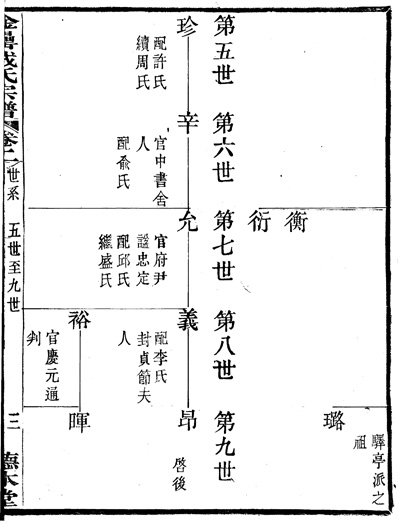 第五世
珍
配許氏
續周氏
第六世
辛
官中書舍
人
配俞氏
第七世
衡
衍
允
官府尹
諡忠定
配邱氏
繼盛氏
第八世
義
配李氏
封貞節夫
人
裕
官慶元通
判
第九世
璐
驛亭派之
祖
昂
啓後
暉
氏宗譜
卷二
世系
五世至九世
三
德本堂